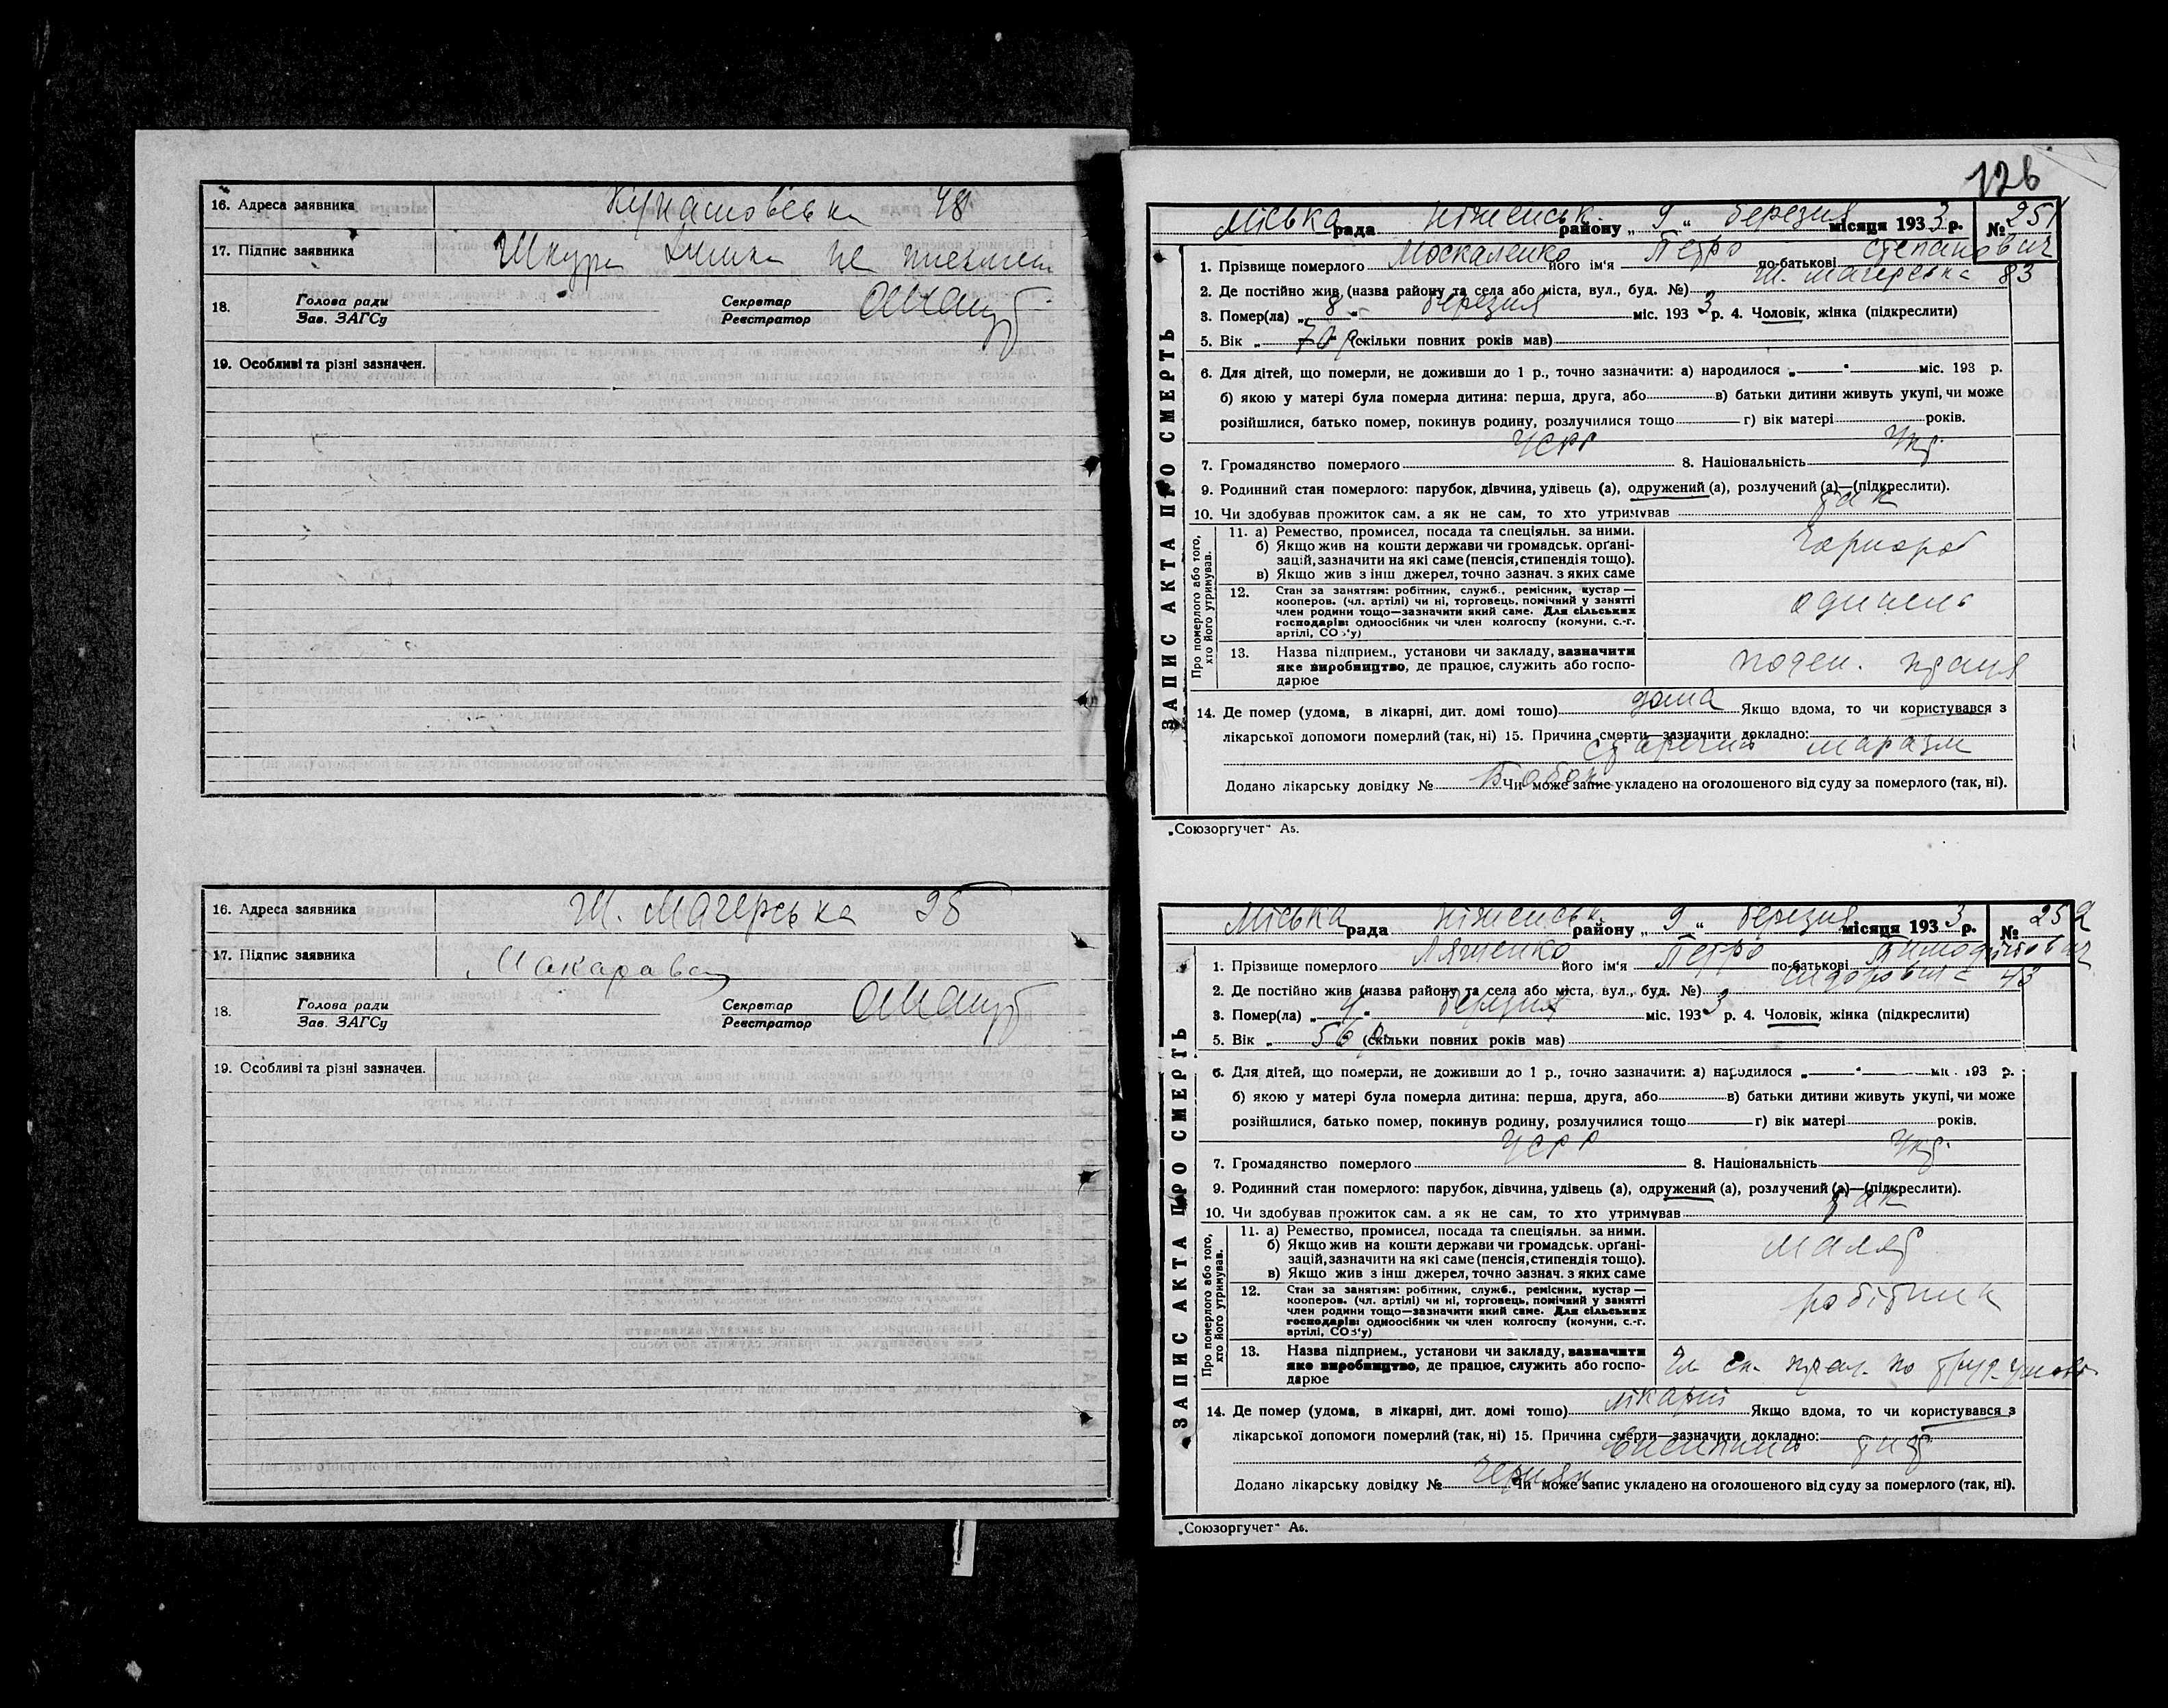 16. Адреса заявника Кунашовська 48
17. Підпис заявника Шкура не письмен
18. Голова ради Зав. ЗАГСу Секретар Реєстратор
19. Особливі та різні зазначен.
16. Адреса заявника Ш. Магерська 95
17. Підпис заявника
18. Голова ради Зав. ЗАГСу Секретар Реєстратор
19. Особливі та різні зазначен.
126
Міська рада Ніженськ. району „ 9 “ березня місяця 1933 р. № 251
ЗАПИС АКТА ПРО СМЕРТЬ
1. Прізвище померлого Москаленко його ім'я Петро по-батькові Степанович
2. Де постійно жив (назва району та села або міста, вул., буд. №) Ш. Магерська 83
3. Помер(ла) „ 8 “ березня міс. 1933 р. 4. Чоловік, жінка (підкреслити)
5. Вік „ 70 р. (скільки повних років мав)
6. Для дітей, що померли, не доживши до 1 р., точно зазначити: а) народилося „ “ міс. 193 р.
б) якою у матері була померла дитина: перша, друга, або в) батьки дитини живуть укупі, чи може
розійшлися, батько помер, покинув родину, розлучилися тощо г) вік матері років.
7. Громадянство померлого УСРР 8. Національність Укр.
9. Родинний стан померлого: парубок, дівчина, удівець (а), одружений (а), розлучений (а)—(підкреслити).
10. Чи здобував прожиток сам, а як не сам, то хто утримував так
Про померлого або того, хто його утримував.
11. а) Ремество, промисел, посада та спеціяльн. за ними.
б) Якщо жив на кошти держави чи громадськ. орґані-
зацій, зазначити на які саме (пенсія, стипендія тощо).
в) Якщо жив з інш джерел, точно зазнач. з яких саме
Чорнороб
12. Стан за заняттям: робітник, служб., ремісник, кустар —
кооперов. (чл. артілі) чи ні, торговець, помічний у занятті
член родини тощо—зазначити який саме. Для сільських
господарів: одноосібник чи член колгоспу (комуни, с.-г.
артілі, СОЗ'у)
одинець
13. Назва підприєм., установи чи закладу, зазначити
яке виробництво, де працює, служить або госпо-
дарює
поден. праця
14. Де помер (удома, в лікарні, дит. домі тощо) дома Якщо вдома, то чи користувався з
лікарської допомоги померлий (так, ні) 15. Причина смерти—зазначити докладно:
старечий маразм
Додано лікарську довідку № Чи може запис укладено на оголошеного від суду за померлого (так, ні).
„Союзоргучет“ А5.
Міська рада Ніженськ. району „ 9 “ березня місяця 1933 р. № 252
ЗАПИС АКТА ПРО СМЕРТЬ
1. Прізвище померлого Ляшенко його ім'я Петро по-батькові
2. Де постійно жив (назва району та села або міста, вул., буд. №) 43
3. Помер(ла) „ “ березня міс. 1933 р. 4. Чоловік, жінка (підкреслити)
5. Вік „ 56 р. (скільки повних років мав)
6. Для дітей, що померли, не доживши до 1 р., точно зазначити: а) народилося „ “ міс. 193 р.
б) якою у матері була померла дитина: перша, друга, або в) батьки дитини живуть укупі, чи може
розійшлися, батько помер, покинув родину, розлучилися тощо г) вік матері років.
7. Громадянство померлого УСРР 8. Національність Укр.
9. Родинний стан померлого: парубок, дівчина, удівець (а), одружений (а), розлучений (а)—(підкреслити).
10. Чи здобував прожиток сам, а як не сам, то хто утримував так
Про померлого або того, хто його утримував.
11. а) Ремество, промисел, посада та спеціяльн. за ними.
б) Якщо жив на кошти держави чи громадськ. орґані-
зацій, зазначити на які саме (пенсія, стипендія тощо).
в) Якщо жив з інш джерел, точно зазнач. з яких саме
маляр
12. Стан за заняттям: робітник, служб., ремісник, кустар —
кооперов. (чл. артілі) чи ні, торговець, помічний у занятті
член родини тощо—зазначити який саме. Для сільських
господарів: одноосібник чи член колгоспу (комуни, с.-г.
артілі, СОЗ'у)
робітник
13. Назва підприєм., установи чи закладу, зазначити
яке виробництво, де працює, служить або госпо-
дарює
14. Де помер (удома, в лікарні, дит. домі тощо) лікарні Якщо вдома, то чи користувався з
лікарської допомоги померлий (так, ні) 15. Причина смерти—зазначити докладно:
висипний тиф
Додано лікарську довідку № Черняк Чи може запис укладено на оголошеного від суду за померлого (так, ні).
„Союзоргучет“ А5.